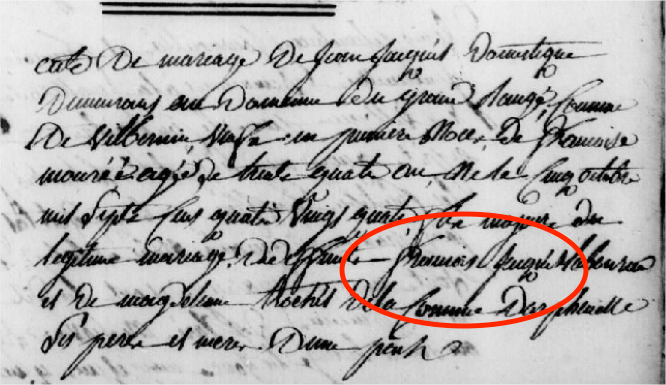 acte De mariage De Jean Jacquis Domestique
Demeurans au Domaine du grand Commune
De Villbernin, veufe in premiere Noce, de francoise
agée de trente quatre ans Né le Cinq octobre
mil Sept Cens quatre Vingt quatre, fils majeure du
legitime mariage De francois Jacquis Laboureur
et de magdelaine De la Commune Darpheuille
Ses pere et mere Dune part